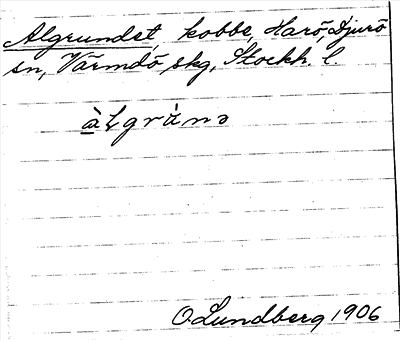 Algrundet, kobbe, Harö, Djurö
sn, Värmdö skg, Stockh. l.
O Lundberg 1906